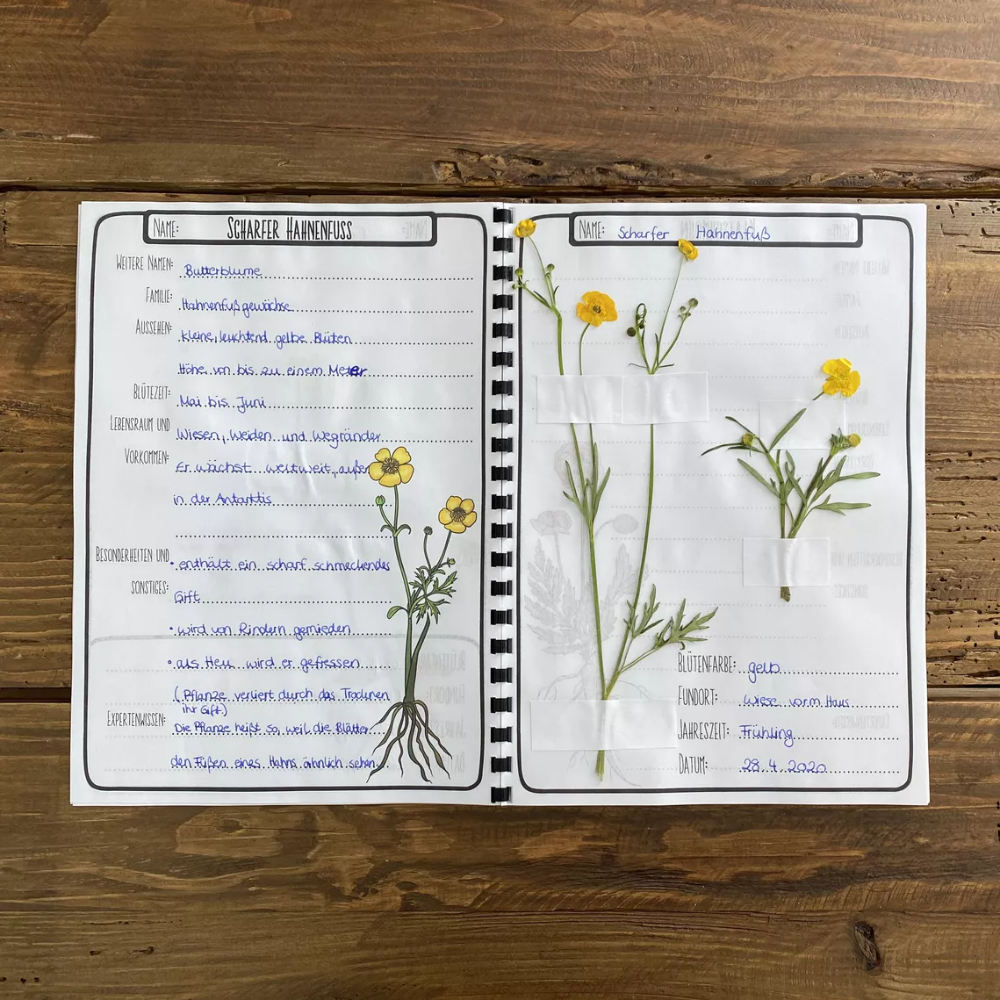 NAME: SCHARFER HAHNENFUSS
WEITERE NAMEN: Butterblume
FAMILIE: Hahnenfußgewächse
AUSSEHEN: kleine, leuchtend gelbe Blüten
Höhe von bis zu einem Meter
BLÜTEZEIT: Mai bis Juni
LEBENSRAUM UND Wiesen, Weiden und Wegränder
VORKOMMEN: Er wächst weltweit, außer
in der Antarktis
BESONDERHEITEN UND • enthält ein scharf schmeckendes
SONSTIGES: Gift
• wird von Rindern gemieden
• als Heu wird er gefressen
(Pflanze verliert durch das Trocknen
ihr Gift)
EXPERTENWISSEN: Die Pflanze heißt so, weil die Blätter
den Füßen eines Hahns ähnlich sehen
NAME: Scharfer Hahnenfuß
BLÜTENFARBE: gelb
FUNDORT: Wiese vorm Haus
JAHRESZEIT: Frühling
DATUM: 28.4.2020